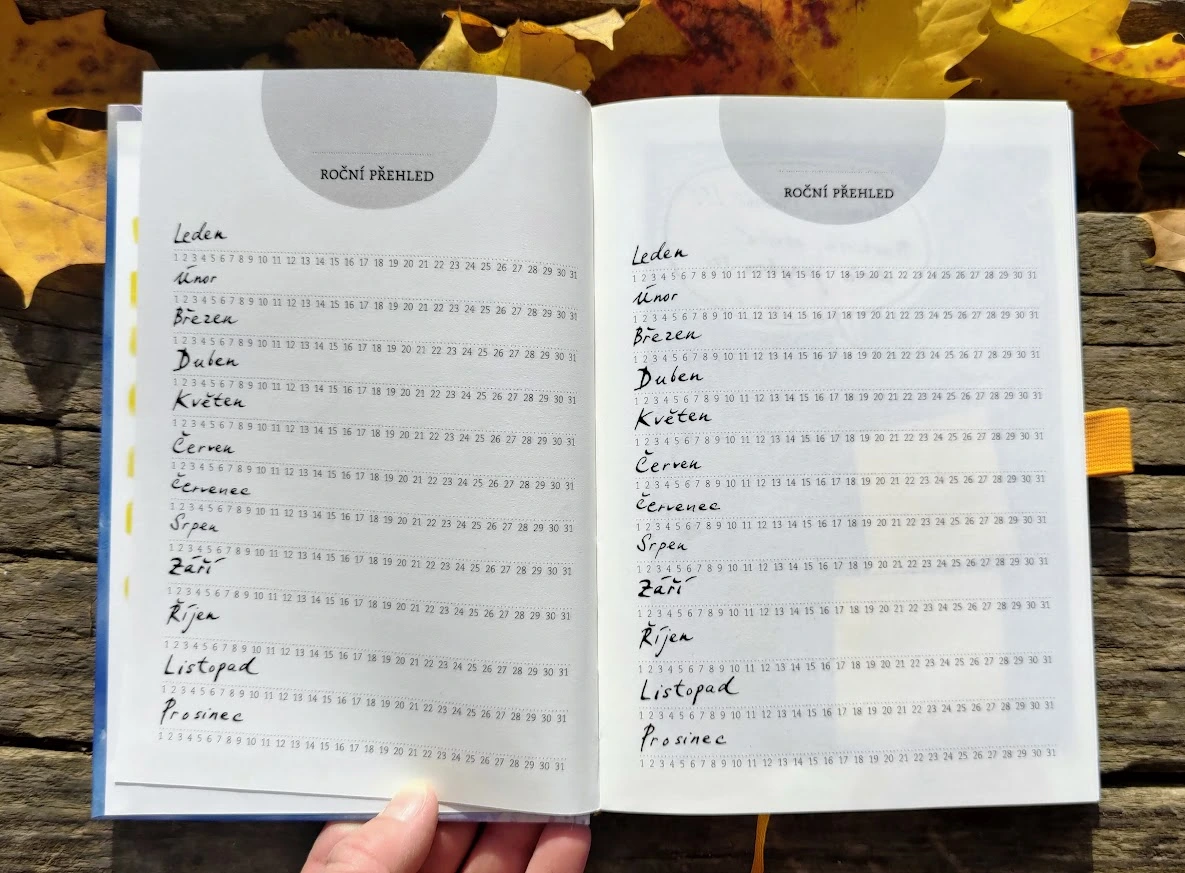 ROČNÍ PŘEHLED
Leden
1 2 3 4 5 6 7 8 9 10 11 12 13 14 15 16 17 18 19 20 21 22 23 24 25 26 27 28 29 30 31
Únor
1 2 3 4 5 6 7 8 9 10 11 12 13 14 15 16 17 18 19 20 21 22 23 24 25 26 27 28 29 30 31
Březen
1 2 3 4 5 6 7 8 9 10 11 12 13 14 15 16 17 18 19 20 21 22 23 24 25 26 27 28 29 30 31
Duben
1 2 3 4 5 6 7 8 9 10 11 12 13 14 15 16 17 18 19 20 21 22 23 24 25 26 27 28 29 30 31
Květen
1 2 3 4 5 6 7 8 9 10 11 12 13 14 15 16 17 18 19 20 21 22 23 24 25 26 27 28 29 30 31
Červen
1 2 3 4 5 6 7 8 9 10 11 12 13 14 15 16 17 18 19 20 21 22 23 24 25 26 27 28 29 30 31
Červenec
1 2 3 4 5 6 7 8 9 10 11 12 13 14 15 16 17 18 19 20 21 22 23 24 25 26 27 28 29 30 31
Srpen
1 2 3 4 5 6 7 8 9 10 11 12 13 14 15 16 17 18 19 20 21 22 23 24 25 26 27 28 29 30 31
Září
1 2 3 4 5 6 7 8 9 10 11 12 13 14 15 16 17 18 19 20 21 22 23 24 25 26 27 28 29 30 31
Říjen
1 2 3 4 5 6 7 8 9 10 11 12 13 14 15 16 17 18 19 20 21 22 23 24 25 26 27 28 29 30 31
Listopad
1 2 3 4 5 6 7 8 9 10 11 12 13 14 15 16 17 18 19 20 21 22 23 24 25 26 27 28 29 30 31
Prosinec
1 2 3 4 5 6 7 8 9 10 11 12 13 14 15 16 17 18 19 20 21 22 23 24 25 26 27 28 29 30 31
ROČNÍ PŘEHLED
Leden
1 2 3 4 5 6 7 8 9 10 11 12 13 14 15 16 17 18 19 20 21 22 23 24 25 26 27 28 29 30 31
Únor
1 2 3 4 5 6 7 8 9 10 11 12 13 14 15 16 17 18 19 20 21 22 23 24 25 26 27 28 29 30 31
Březen
1 2 3 4 5 6 7 8 9 10 11 12 13 14 15 16 17 18 19 20 21 22 23 24 25 26 27 28 29 30 31
Duben
1 2 3 4 5 6 7 8 9 10 11 12 13 14 15 16 17 18 19 20 21 22 23 24 25 26 27 28 29 30 31
Květen
1 2 3 4 5 6 7 8 9 10 11 12 13 14 15 16 17 18 19 20 21 22 23 24 25 26 27 28 29 30 31
Červen
1 2 3 4 5 6 7 8 9 10 11 12 13 14 15 16 17 18 19 20 21 22 23 24 25 26 27 28 29 30 31
Červenec
1 2 3 4 5 6 7 8 9 10 11 12 13 14 15 16 17 18 19 20 21 22 23 24 25 26 27 28 29 30 31
Srpen
1 2 3 4 5 6 7 8 9 10 11 12 13 14 15 16 17 18 19 20 21 22 23 24 25 26 27 28 29 30 31
Září
1 2 3 4 5 6 7 8 9 10 11 12 13 14 15 16 17 18 19 20 21 22 23 24 25 26 27 28 29 30 31
Říjen
1 2 3 4 5 6 7 8 9 10 11 12 13 14 15 16 17 18 19 20 21 22 23 24 25 26 27 28 29 30 31
Listopad
1 2 3 4 5 6 7 8 9 10 11 12 13 14 15 16 17 18 19 20 21 22 23 24 25 26 27 28 29 30 31
Prosinec
1 2 3 4 5 6 7 8 9 10 11 12 13 14 15 16 17 18 19 20 21 22 23 24 25 26 27 28 29 30 31